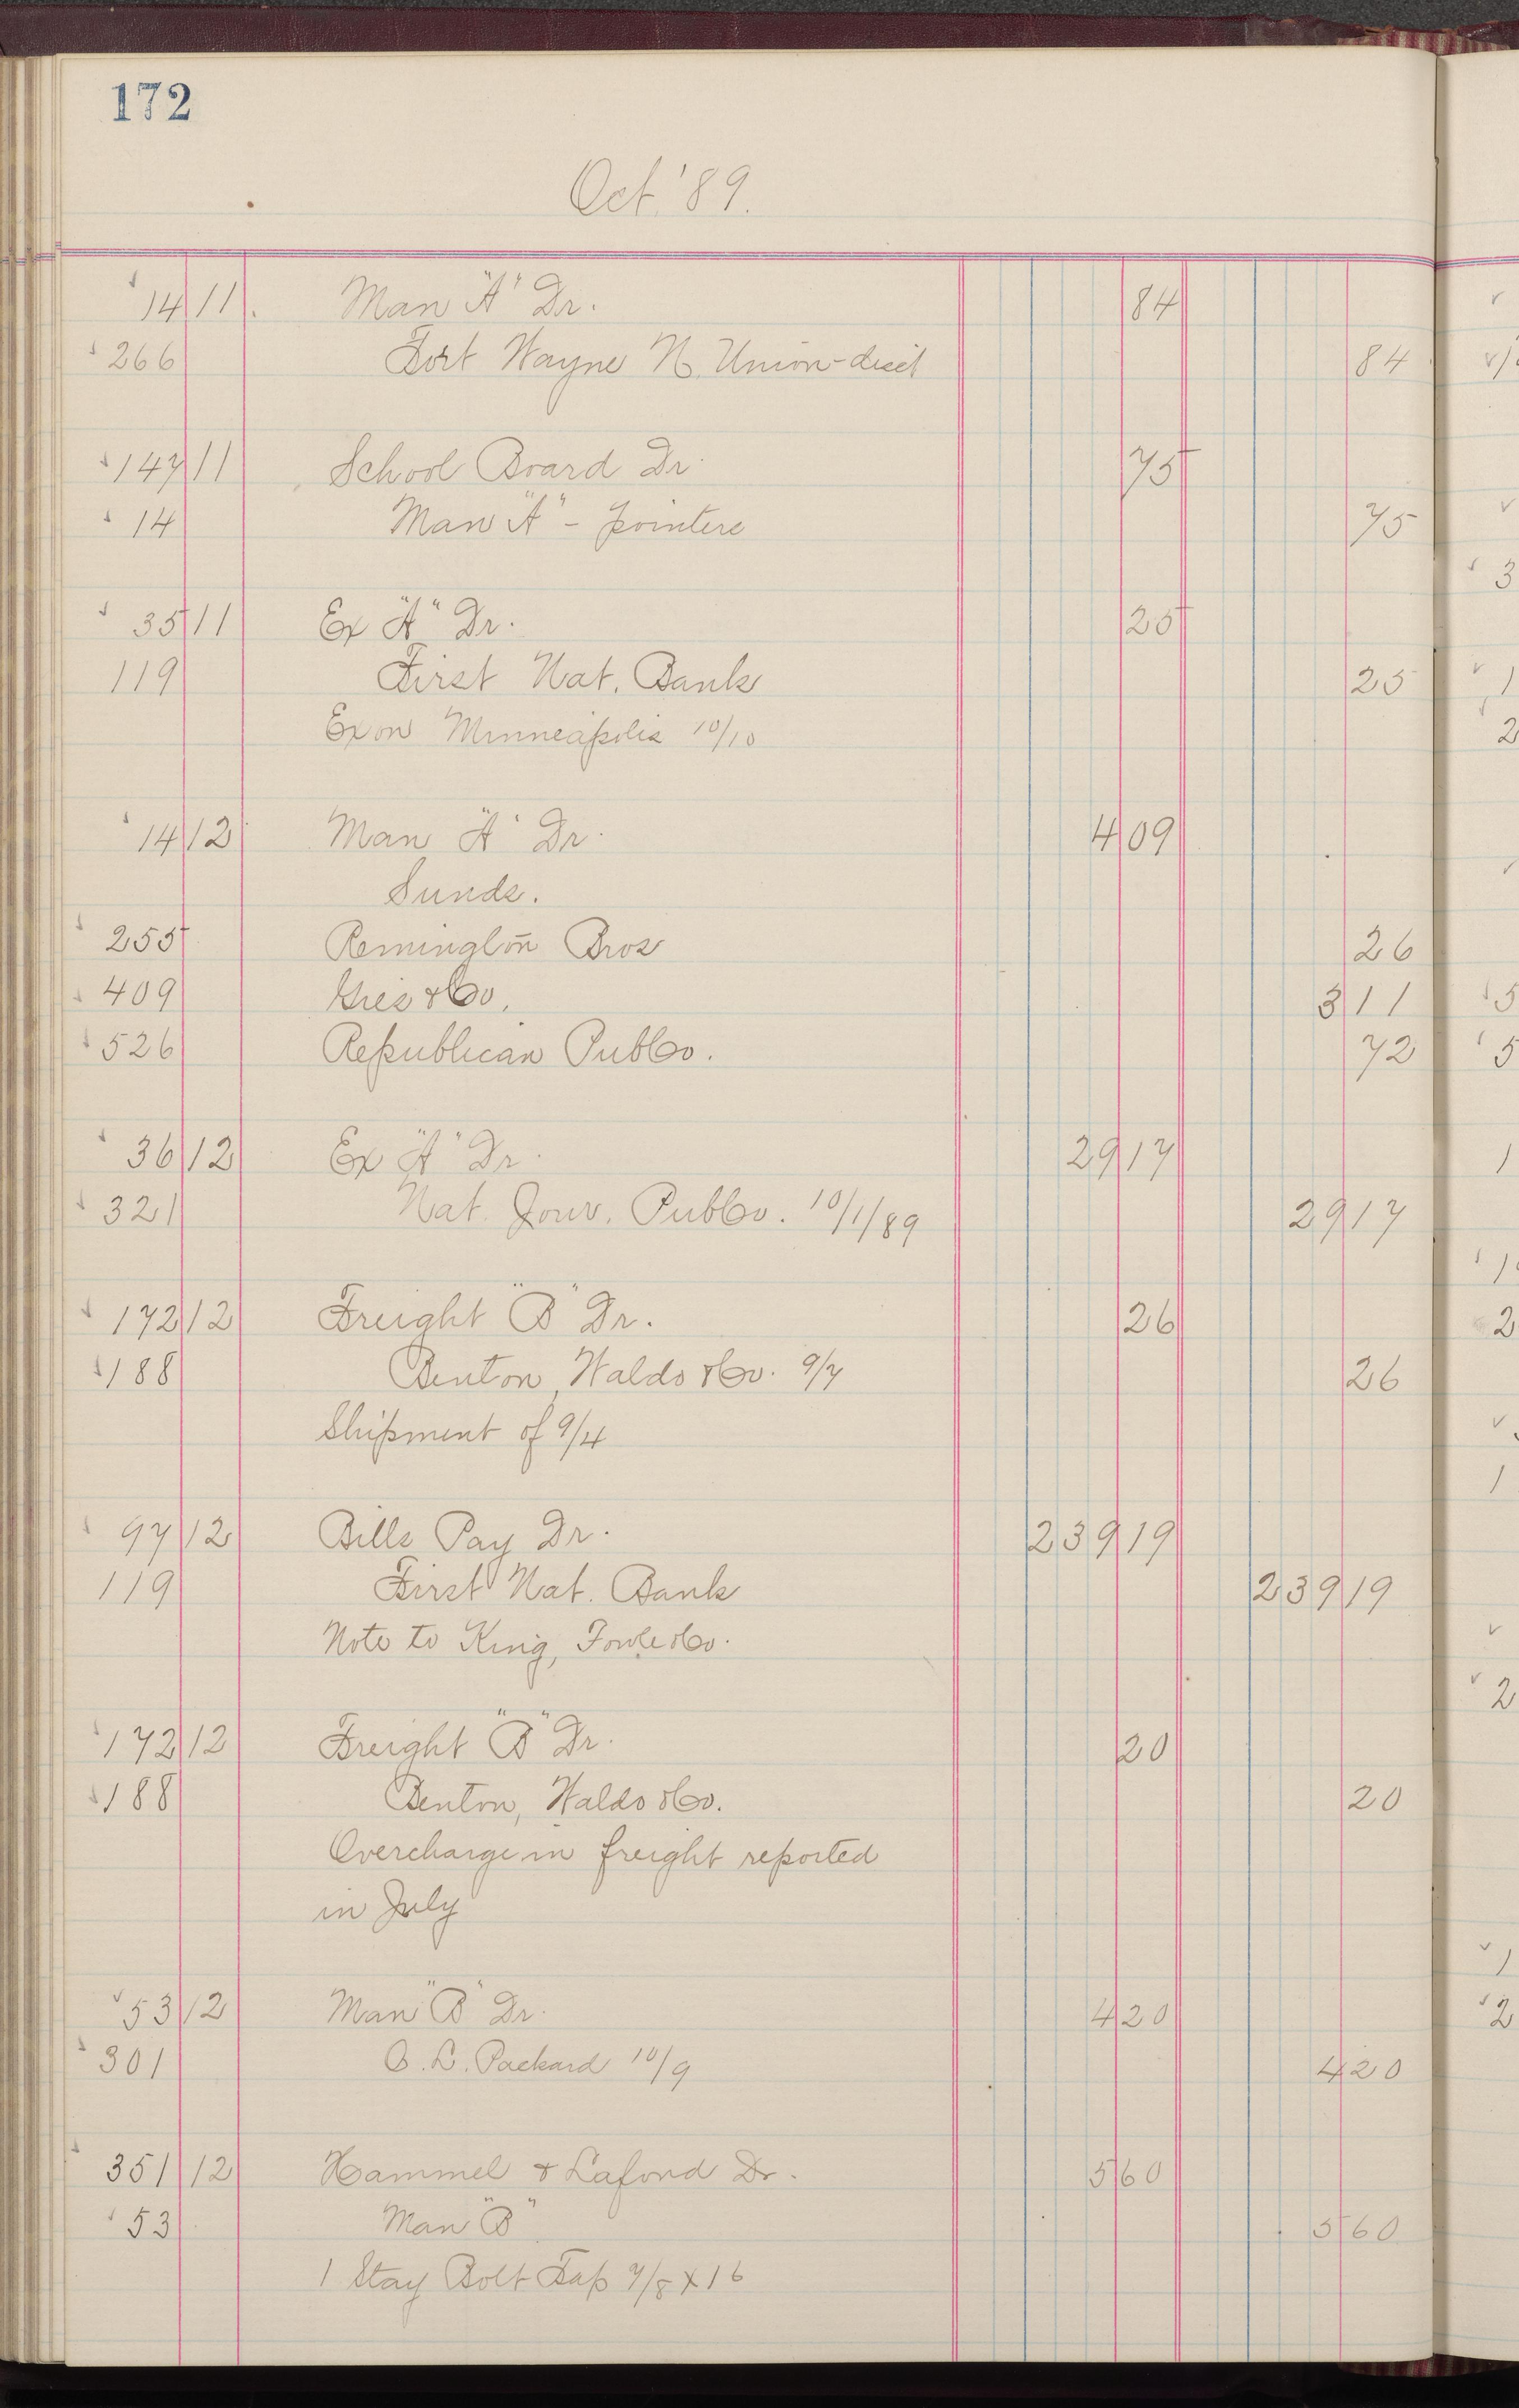 172
Oct. '89.
14 11. Man "A" Dr. 84
266 Fort Wayne N. Union - disct 84
147 11 School Board Dr. 75
14 Man "A" - pointers 75
35 11 Ex "A" Dr. 25
119 First Nat. Bank 25
Ex on Minneapolis 10/10
14 12 Man "A" Dr. 4 09
Sunds.
255 Remington Bros 26
409 & Co. 3 11
526 Republican Pub Co. 72
36 12 Ex "A" Dr. 29 17
321 Nat. Jour. Pub Co. 10/1/89 29 17
172 12 Freight "B" Dr. 26
188 Benton, Waldo & Co. 9/7 26
Shipment of 9/4
97 12 Bills Pay Dr. 239 19
119 First Nat. Bank 239 19
Note to King, Fowle & Co.
172 12 Freight "B" Dr. 20
188 Benton, Waldo & Co. 20
Overcharge in freight reported
in July
53 12 Man "B" Dr. 4 20
301 L. Packard 10/9 4 20
351 12 Hammel & Lafond Dr. 5 60
53 Man "B" 5 60
1 Stay Bolt Tap 7/8 x 16